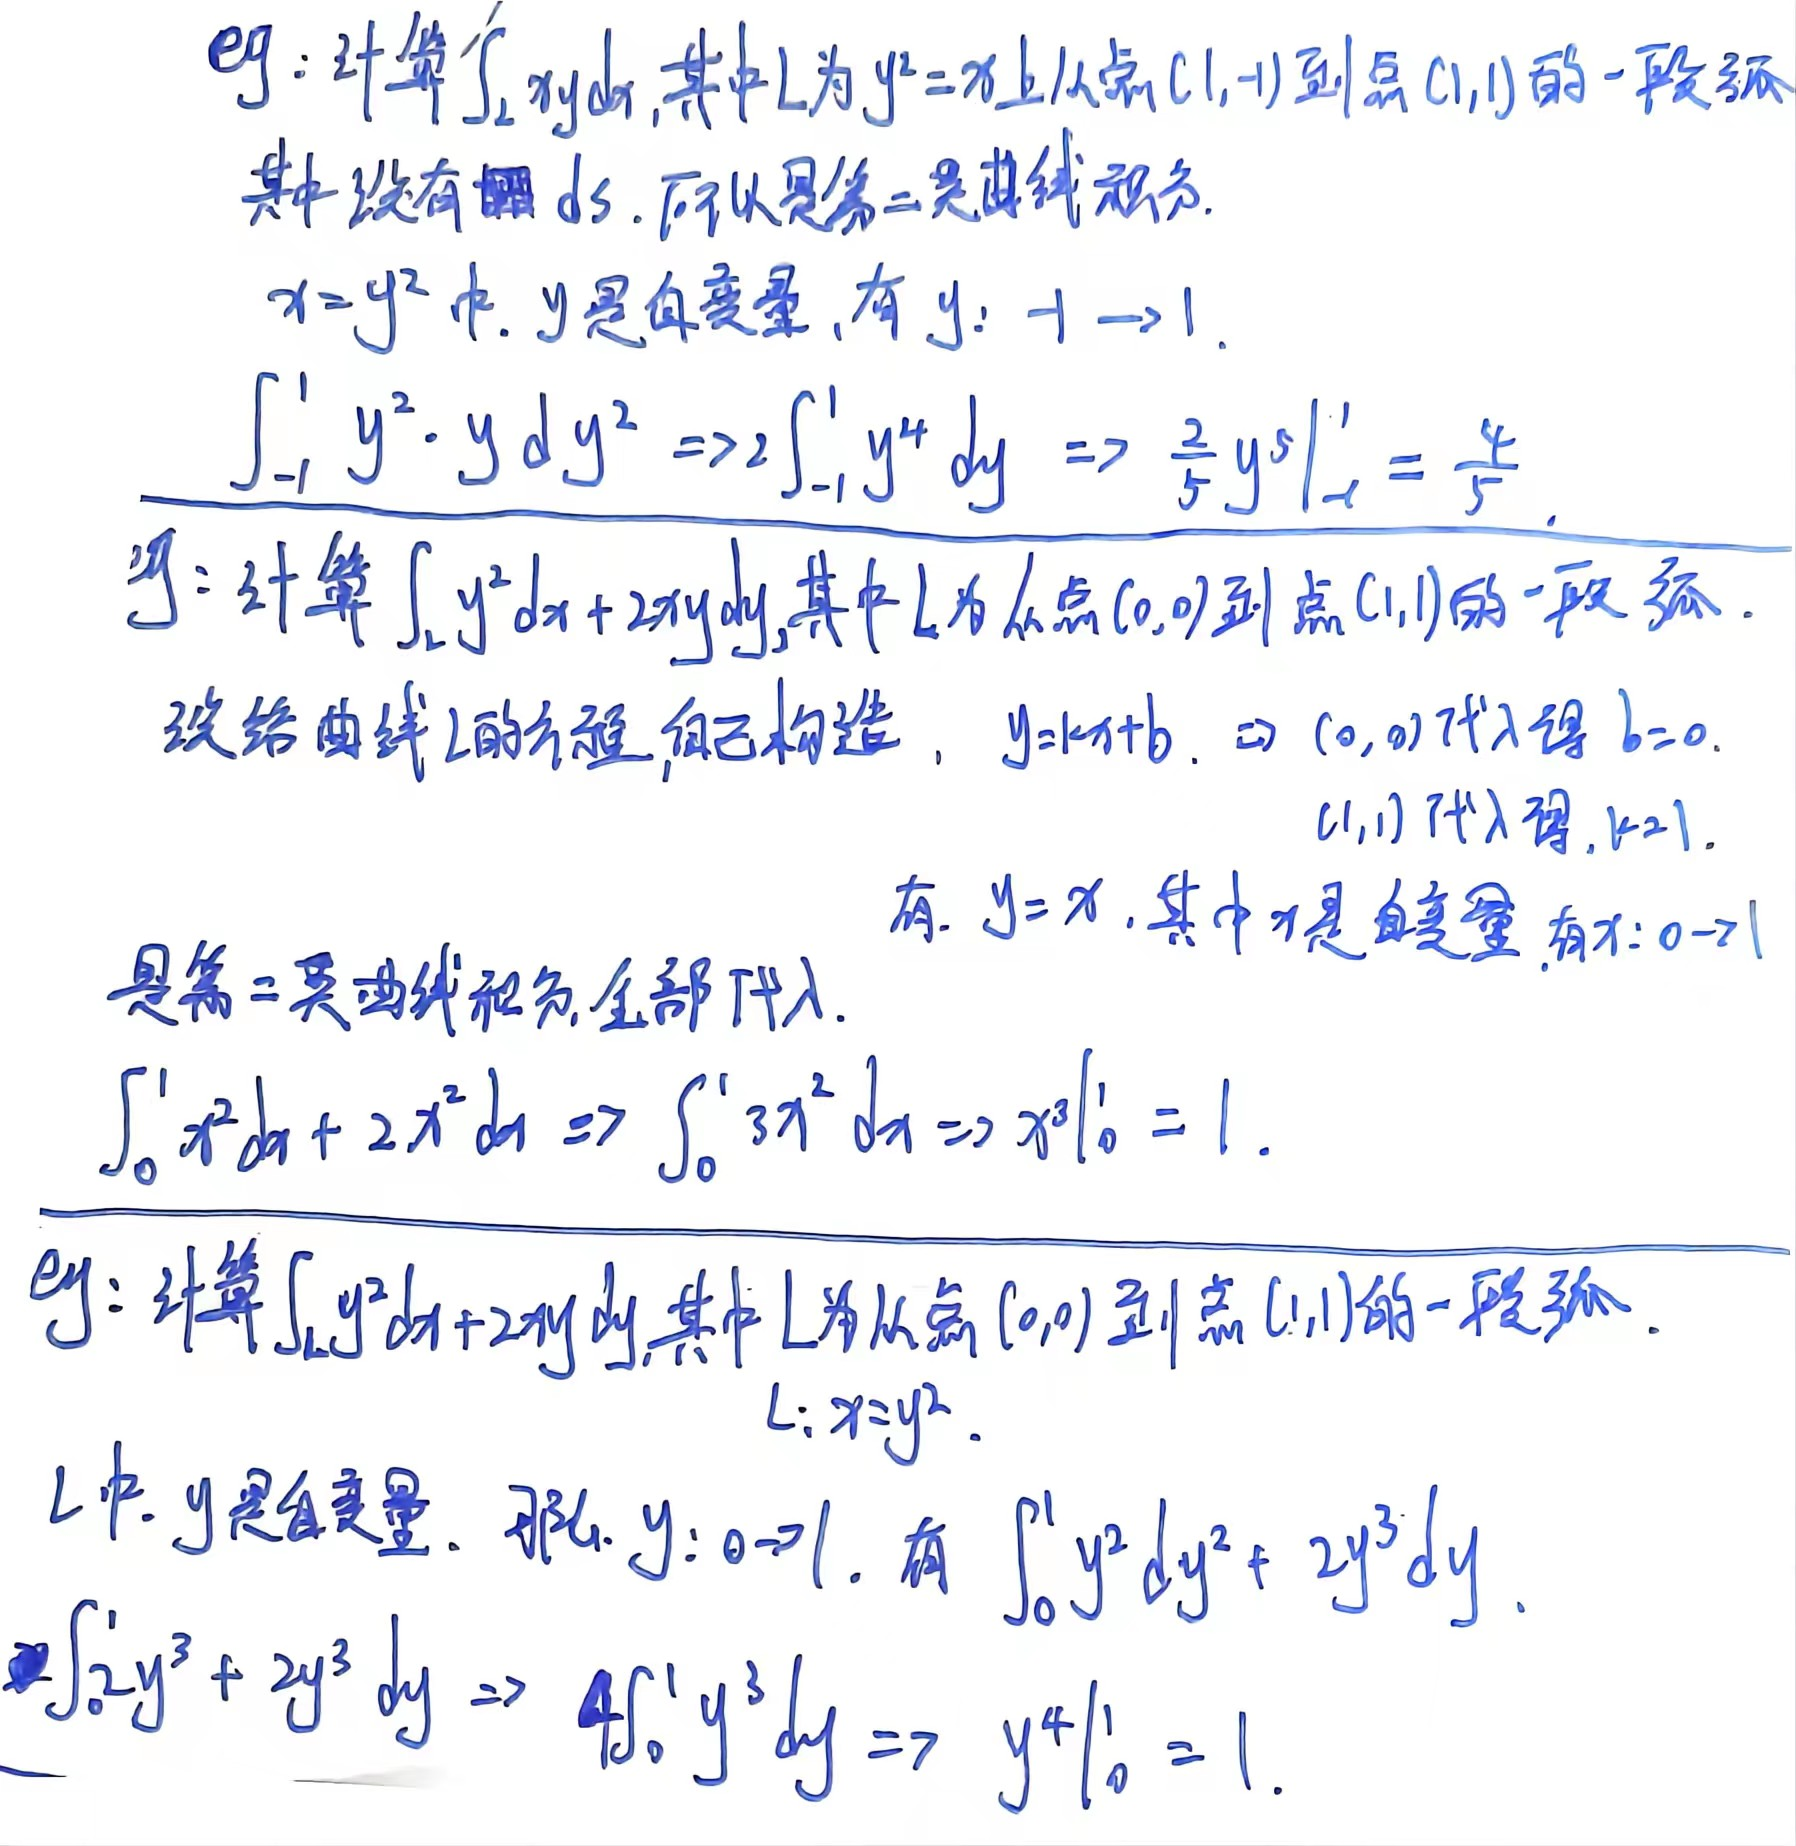 eg：计算∫_L xydx，其中L为y²=x上从点(1,-1)到点(1,1)的一段弧
其中没有 ds．所以是第二类曲线积分．
x=y²中．y是自变量，有 y：-1→1．
∫_{-1}^{1} y²·y dy² => 2∫_{-1}^{1} y⁴ dy => 2/5 y⁵|_{-1}^{1} = 4/5．
eg：计算∫_L y²dx+2xydy，其中L为从点(0,0)到点(1,1)的一段弧．
没给曲线L的方程，自己构造，y=kx+b．=> (0,0)代入得 b=0．
(1,1)代入得．k=1．
有．y=x．其中x是自变量，有x：0→1
是第二类曲线积分，全部代入．
∫_0^1 x²dx+2x²dx => ∫_0^1 3x² dx => x³|_0^1 = 1．
eg：计算∫_L y²dx+2xydy，其中L为从点(0,0)到点(1,1)的一段弧．
L：x=y²．
L中．y是自变量．那么．y：0→1．有 ∫_0^1 y²dy²+2y³dy．
∫_0^1 2y³+2y³ dy => 4∫_0^1 y³dy => y⁴|_0^1 = 1．